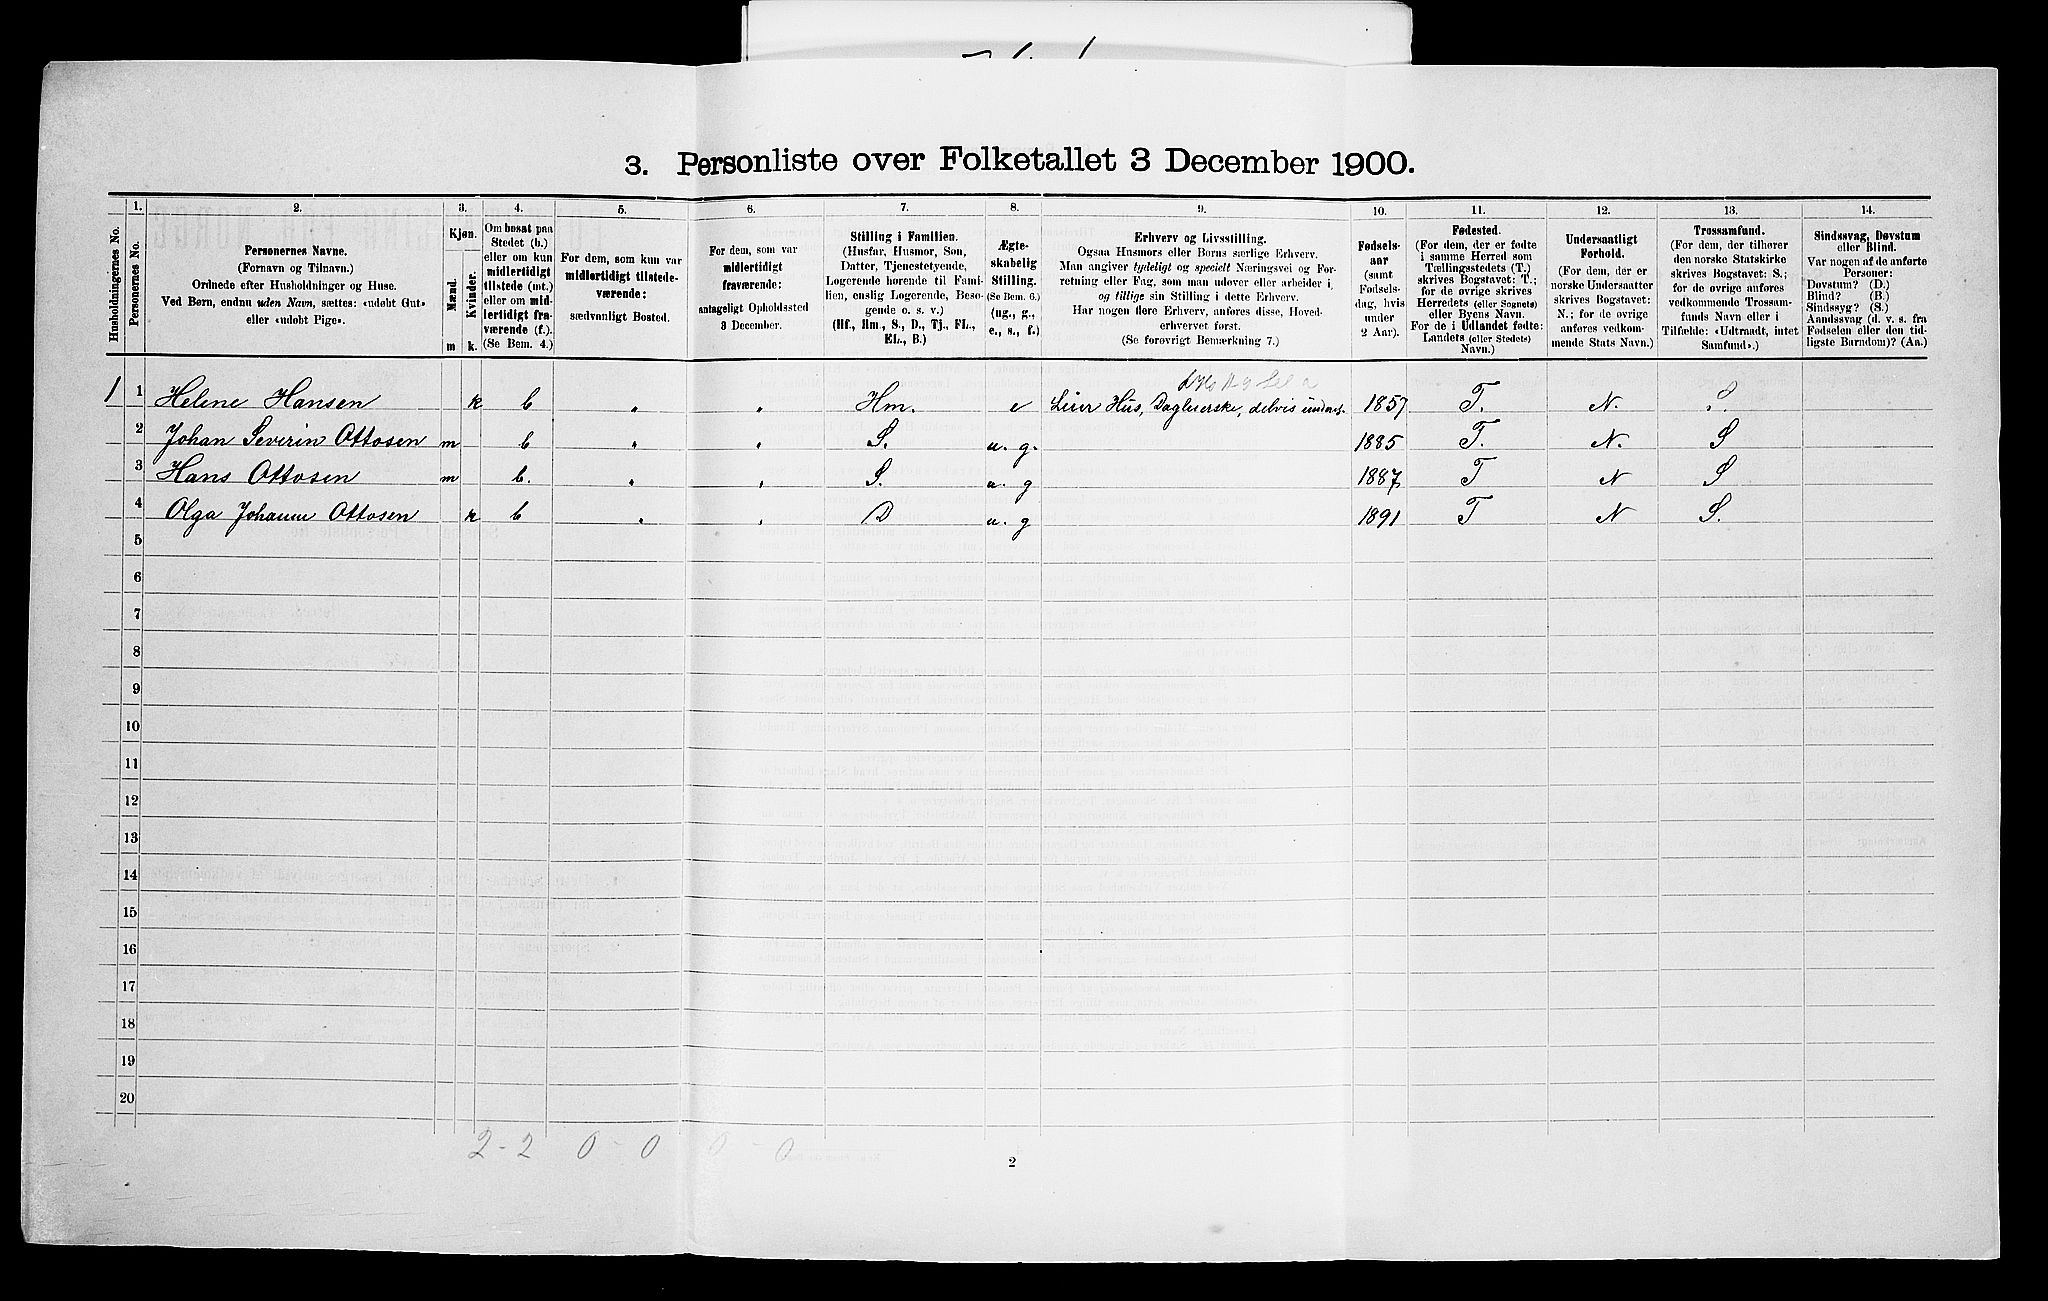 3. Personliste over Folketallet 3 December 1900.
Husholdningernes No.
1.
Personernes No.
2.
Personernes Navne.
(Fornavn og Tilnavn.)
Ordnede efter Husholdninger og Huse.
Ved Børn, endnu uden Navn, sættes: «udøbt Gut»
eller «udøbt Pige».
3.
Kjøn.
Mænd.
Kvinder.
m
k.
4.
Om bosat paa
Stedet (b.)
eller om kun
midlertidigt
tilstede (mt.)
eller om mid-
lertidigt fra-
værende (f.).
(Se Bem. 4.)
5.
For dem, som kun var
midlertidigt tilstede-
værende:
sædvanligt Bosted.
6.
For dem, som var
midlertidigt
fraværende:
antageligt Opholdssted
3 December.
7.
Stilling i Familien.
(Husfar, Husmor, Søn,
Datter, Tjenestetyende,
Logerende hørende til Fami-
lien, enslig Logerende, Besø-
gende o. s. v.)
(Hf., Hm., S., D., Tj., FL.,
EL., B.)
8.
Ægte-
skabelig
Stilling.
(Se Bem. 6.)
(ug., g.,
e., s., f.)
9.
Erhverv og Livsstilling.
Ogsaa Husmors eller Børns særlige Erhverv.
Man angiver tydeligt og specielt Næringsvei og For-
retning eller Fag, som man udøver eller arbeider i,
og tillige sin Stilling i dette Erhverv.
Har nogen flere Erhverv, anføres disse, Hoved-
erhvervet først.
(Se forøvrigt Bemærkning 7.)
10.
Fødsels-
aar
(samt
Fødsels-
dag, hvis
under
2 Aar).
11.
Fødested.
(For dem, der er fødte
i samme Herred som
Tællingsstedets (T.)
skrives Bogstavet: T.;
for de øvrige skrives
Herredets (eller Sognets)
eller Byens Navn.
For de i Udlandet fødte:
Landets (eller Stedets)
Navn.)
12.
Undersaatligt
Forhold.
(For dem, der er
norske Undersaatter
skrives Bogstavet:
N.; for de øvrige
anføres vedkom-
mende Stats Navn.)
13.
Trossamfund.
(For dem, der tilhører
den norske Statskirke
skrives Bogstavet: S.;
for de øvrige anføres
vedkommende Trossam-
funds Navn eller i
Tilfælde: «Udtraadt, intet
Samfund».)
14.
Sindssvag, Døvstum
eller Blind.
Var nogen af de anførte
Personer:
Døvstum? (D.)
Blind? (B.)
Sindssyg? (S.)
Aandssvag (d. v. s. fra
Fødselen eller den tid-
ligste Barndom)? (Aa.)
1 1 Helene Hansen k b " " Hm. e Leier Hus, Dagleierske, delvis underst. 1857 T. N. S.
2 Johan Severin Ottosen m b " " S. u. g. 1885 T. N. S
3 Hans Ottosen m b. " " S. u. g 1887 T N S
4 Olga Johanne Ottosen k b " " D u. g 1891 T N S.
5
6
7
8
9
10
11
12
13
14
15
16
17
18
19
20
2-2 0-0 0-0
2